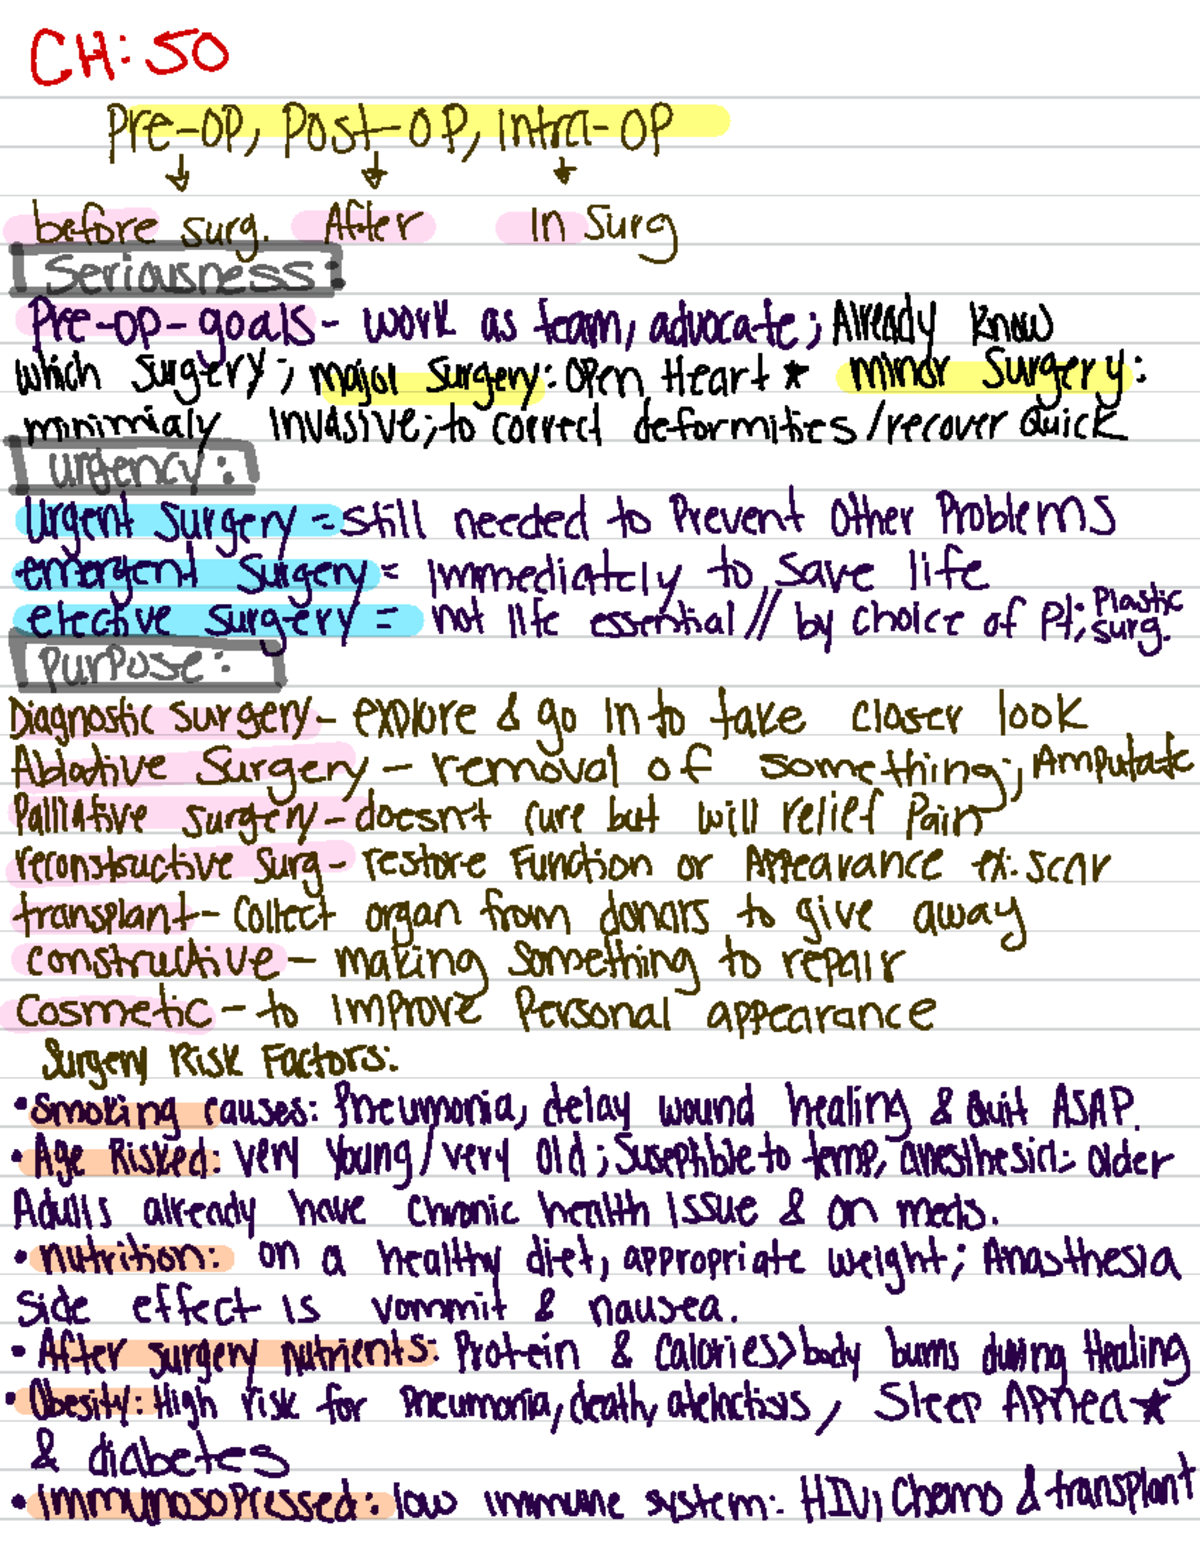 CH: 50
Pre-OP, Post-OP, Intra-OP
before surg. After In Surg
Seriousness:
Pre-op-goals - work as team, advocate; Already know
which surgery; major Surgery: Open Heart ★ minor Surgery:
minimialy invasive; to correct deformities/recover Quick
urgency:
Urgent Surgery = still needed to Prevent Other Problems
emergent Surgery = Immediately to save life
elective surgery = not life essential // by choice of Pt; Plastic surg.
Purpose:
Diagnostic surgery - explore & go in to take closer look
Ablative Surgery - removal of something; Amputate
Palliative surgery - doesn't cure but will relief Pain
reconstructive Surg - restore Function or Appearance ex: scar
transplant - Collect organ from donars to give away
constructive - making something to repair
Cosmetic - to improve Personal appearance
Surgery Risk Factors:
• Smoking causes: Pneumonia, delay wound healing & Quit ASAP.
• Age Risked: very young/very old; Suseptible to temp, anesthesia: older
Adults already have chronic health issue & on meds.
• nutrition: on a healthy diet, appropriate weight; Anasthesia
side effect is vommit & nausea.
• After surgery nutrients: Protein & Calories>>body burns during Healing
• Obesity: High risk for Pneumonia, death, atelactisis, Sleep Apnea ★
& diabetes
• immunosopressed: low immune system: HIV, Chemo & transplant